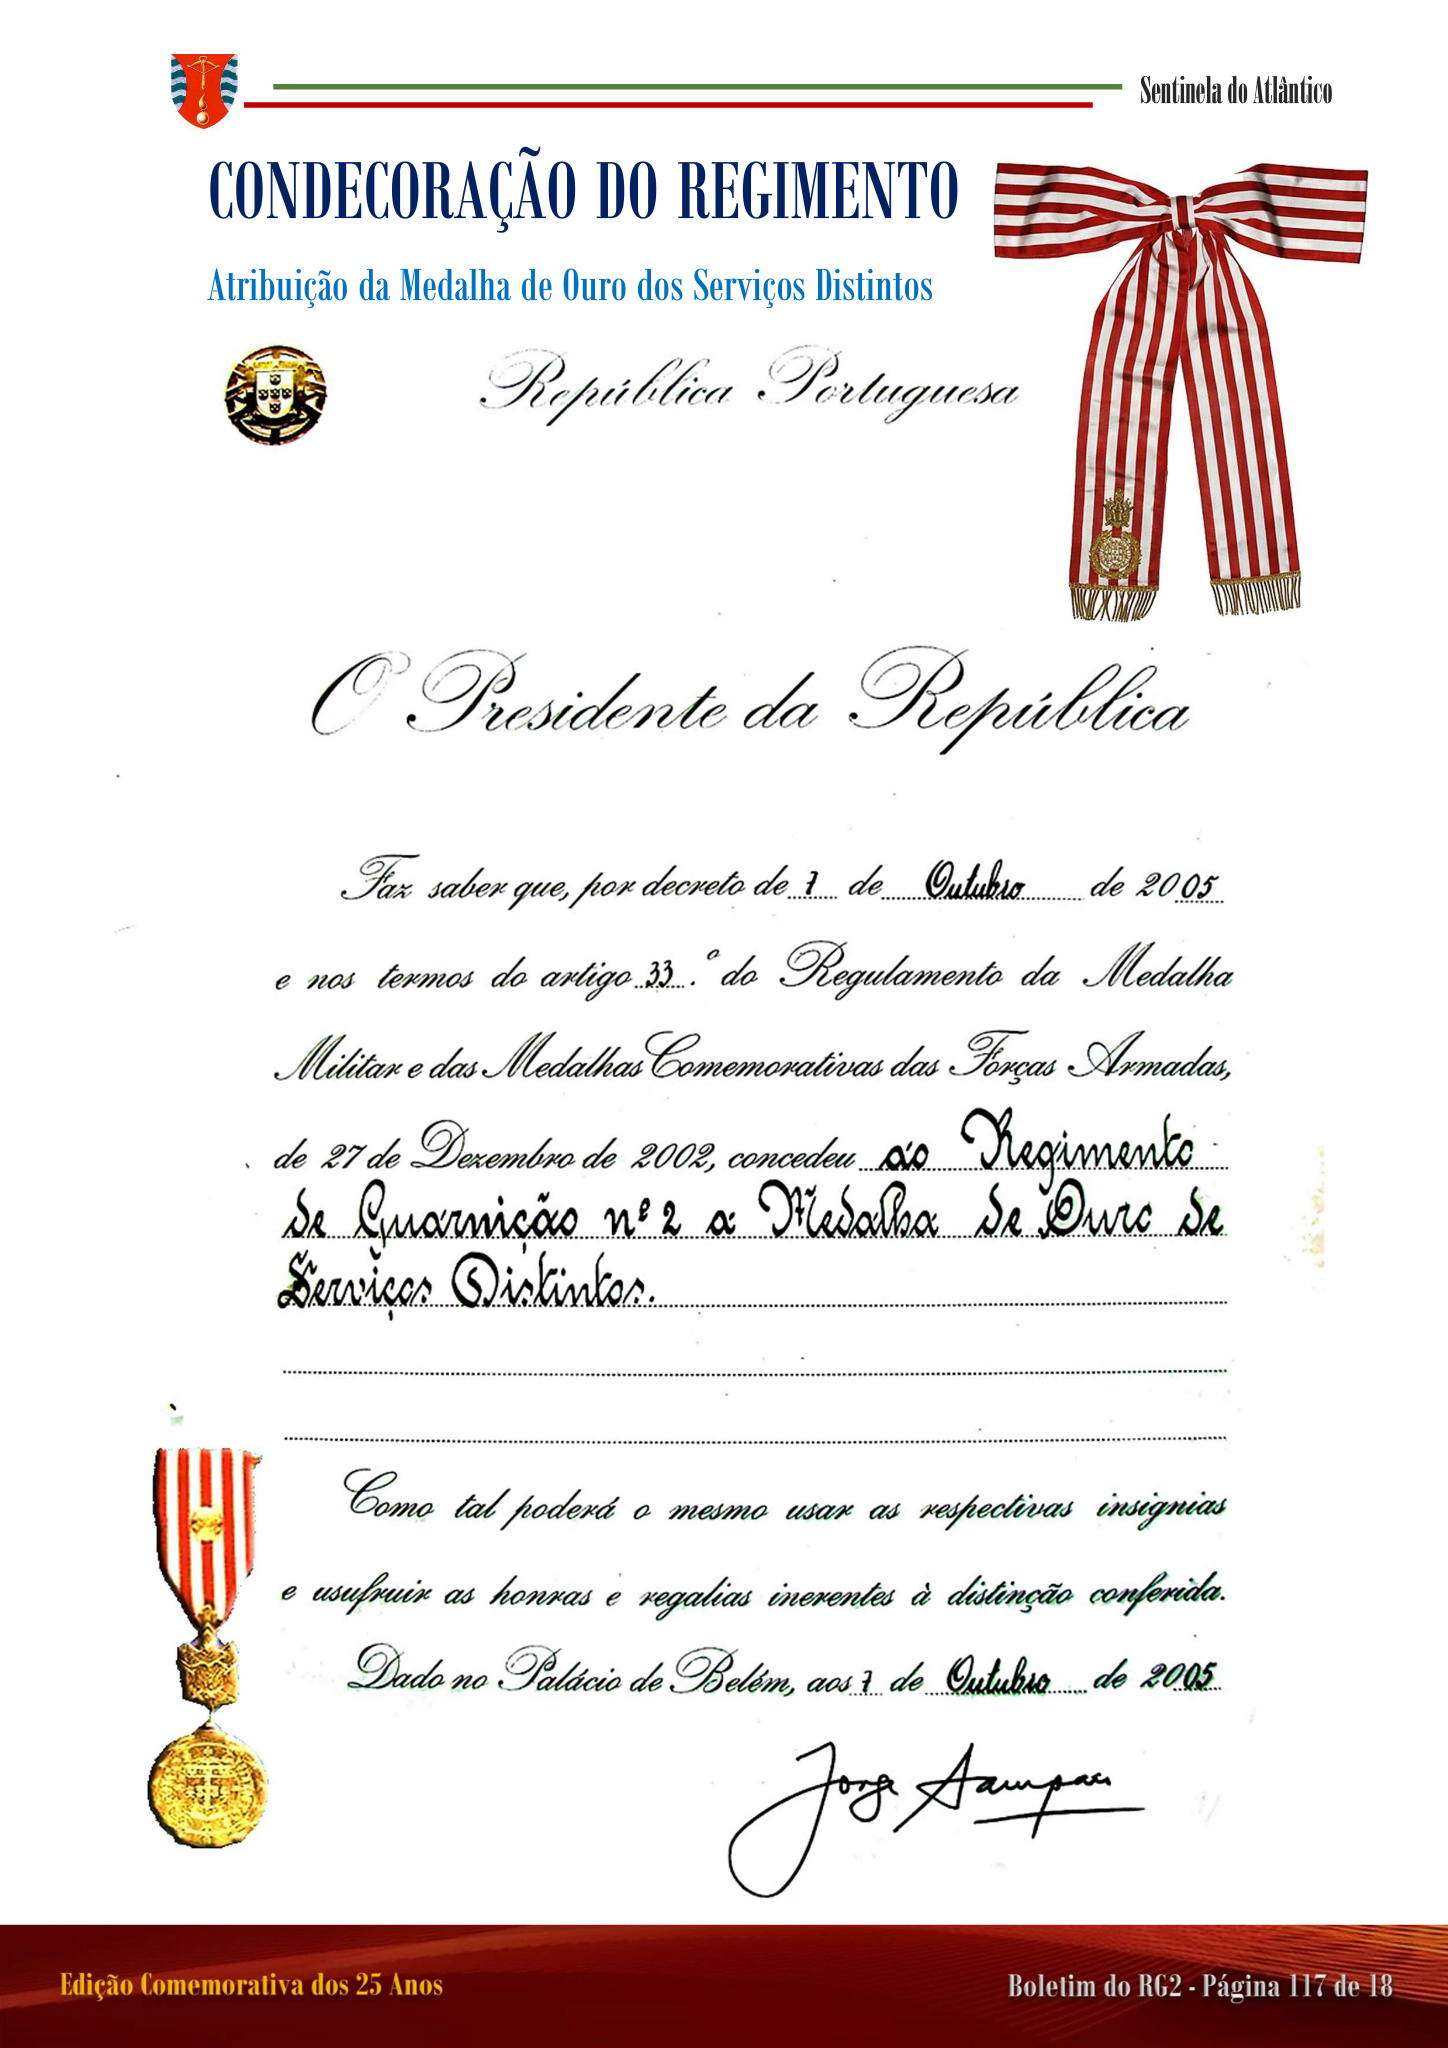 Sentinela do Atlântico
CONDECORAÇÃO DO REGIMENTO
Atribuição da Medalha de Ouro dos Serviços Distintos
República Portuguesa
O Presidente da República
Faz saber que, por decreto de 7 de Outubro de 2005
e nos termos do artigo 33.º do Regulamento da Medalha
Militar e das Medalhas Comemorativas das Forças Armadas,
de 27 de Dezembro de 2002, concedeu ao Regimento
de Guarnição nº 2 a Medalha de Ouro de
Serviços Distintos.
Como tal poderá o mesmo usar as respectivas insignias
e usufruir as honras e regalias inerentes à distinção conferida.
Dado no Palácio de Belém, aos 7 de Outubro de 2005
Jorge Sampaio
Edição Comemorativa dos 25 Anos
Boletim do RG2 - Página 117 de 18